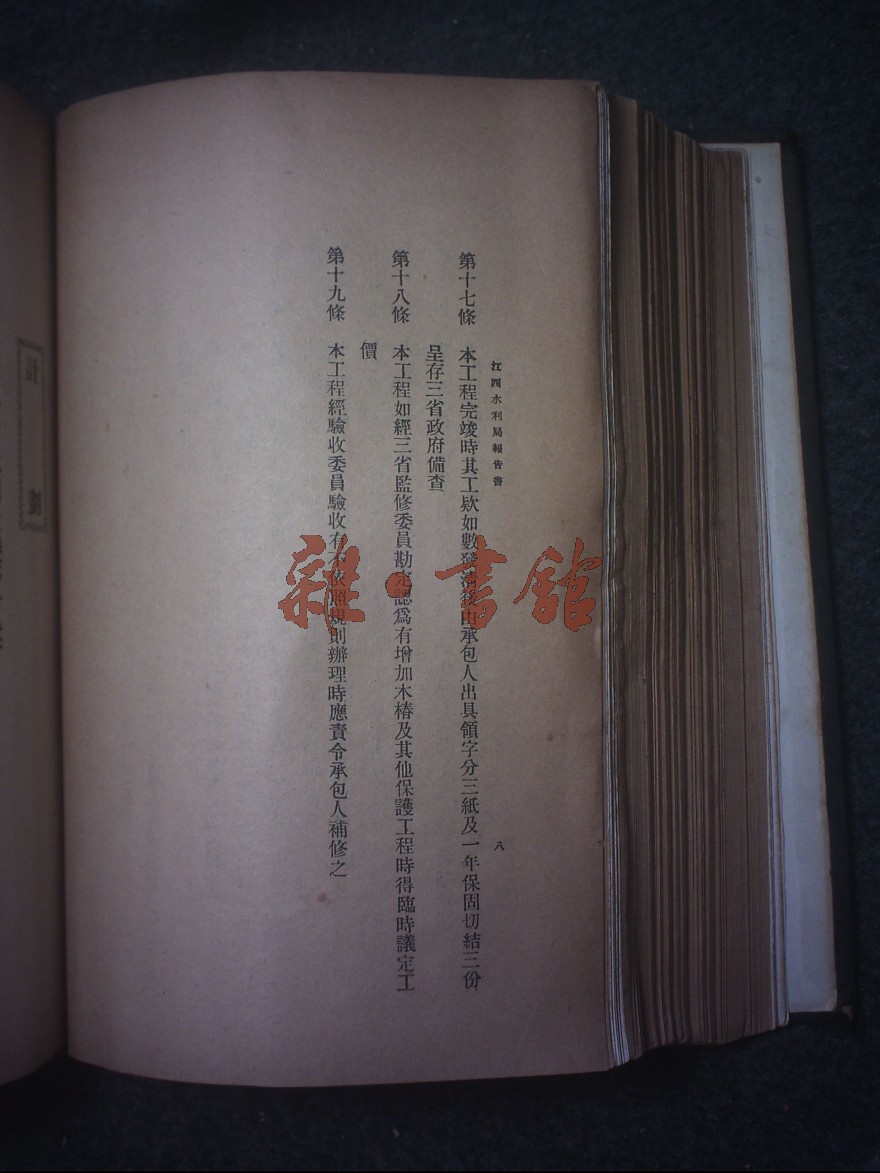 江西水利局報告書
八
第十七條 本工程完竣時其工欵如數發清後由承包人出具領字分三紙及一年保固切結三份
呈存三省政府備查
第十八條 本工程如經三省監修委員勘定認爲有增加木樁及其他保護工程時得臨時議定工
價
第十九條 本工程經驗收委員驗收有不依照規則辦理時應責令承包人補修之
雜·書館